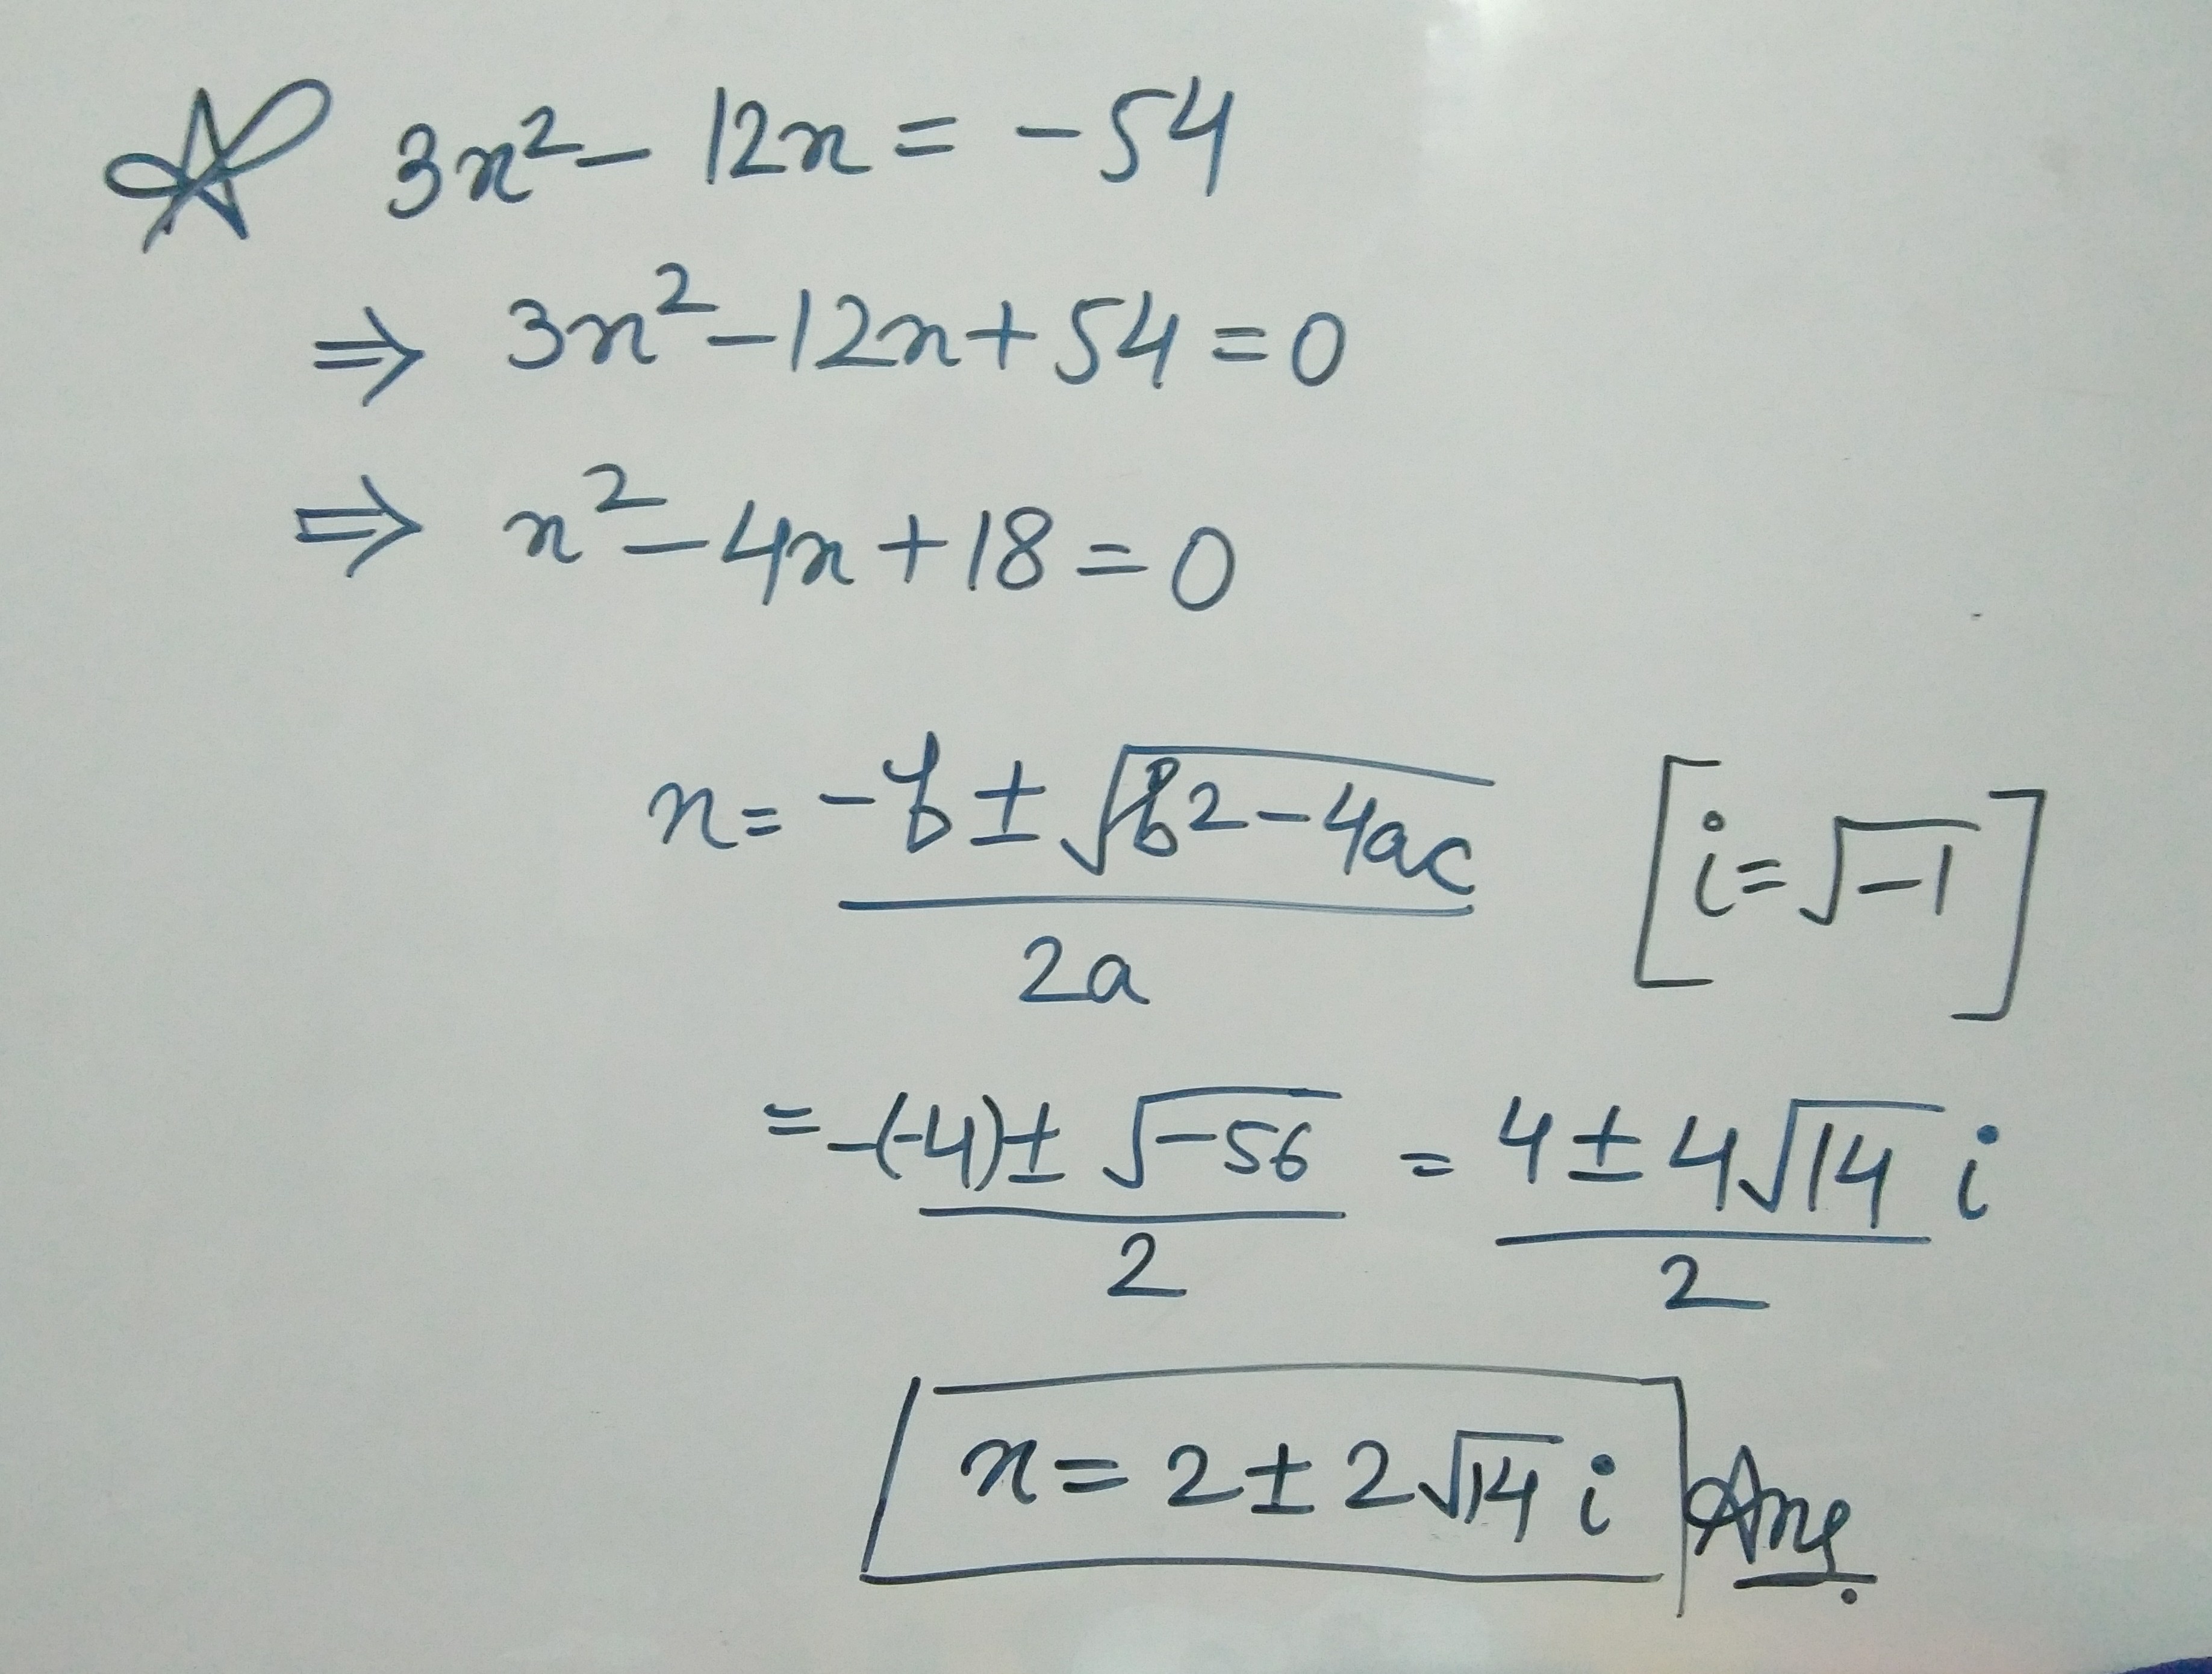 3x² - 12x = -54
⇒ 3x² - 12x + 54 = 0
⇒ x² - 4x + 18 = 0
x = (-b ± √(b2 - 4ac)) / 2a [i = √-1]
= (-(-4) ± √-56) / 2 = (4 ± 4√14 i) / 2
x = 2 ± 2√14 i Ans